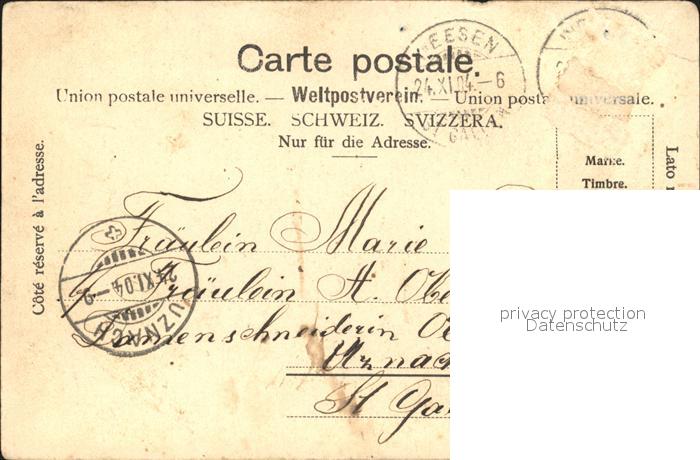 Carte postale.
Union postale universelle. — Weltpostverein. — Union postale universale.
SUISSE. SCHWEIZ. SVIZZERA.
Nur für die Adresse.
WEESEN
24.XI.04.-6
Côté réservé à l'adresse.
Marke.
Timbre.
Lato
Fräulein Marie
Fräulein A. Obe
Damenschneiderin
Uznach
St Ga
UZNACH
24.XI.04.-9
privacy protection
Datenschutz